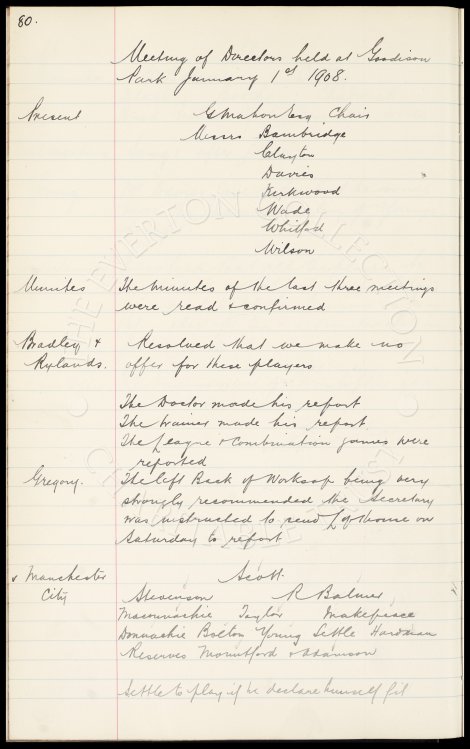 80.
Meeting of Directors held at Goodison
Park January 1st 1908.
Present G Mahon Esq Chair
Messrs Bainbridge
Clayton
Davies
Kirkwood
Wade
Whitford
Wilson
Minutes The minutes of the last three meetings
were read & confirmed
Bradley & Resolved that we make no
Rylands. offer for these players
The Doctor made his report
The trainer made his report.
The League & Combination games were
reported
Gregory. The left Back of Worksop being very
strongly recommended the Secretary
was instructed to send Lythgoe on
Saturday to report
v Manchester Scott.
City Stevenson R Balmer
Maconnachie Taylor Makepeace
Donnachie Bolton Young Settle Hardman
Reserves Mountford & Adamson
Settle to play if he declare himself fit
THE EVERTON COLLECTION